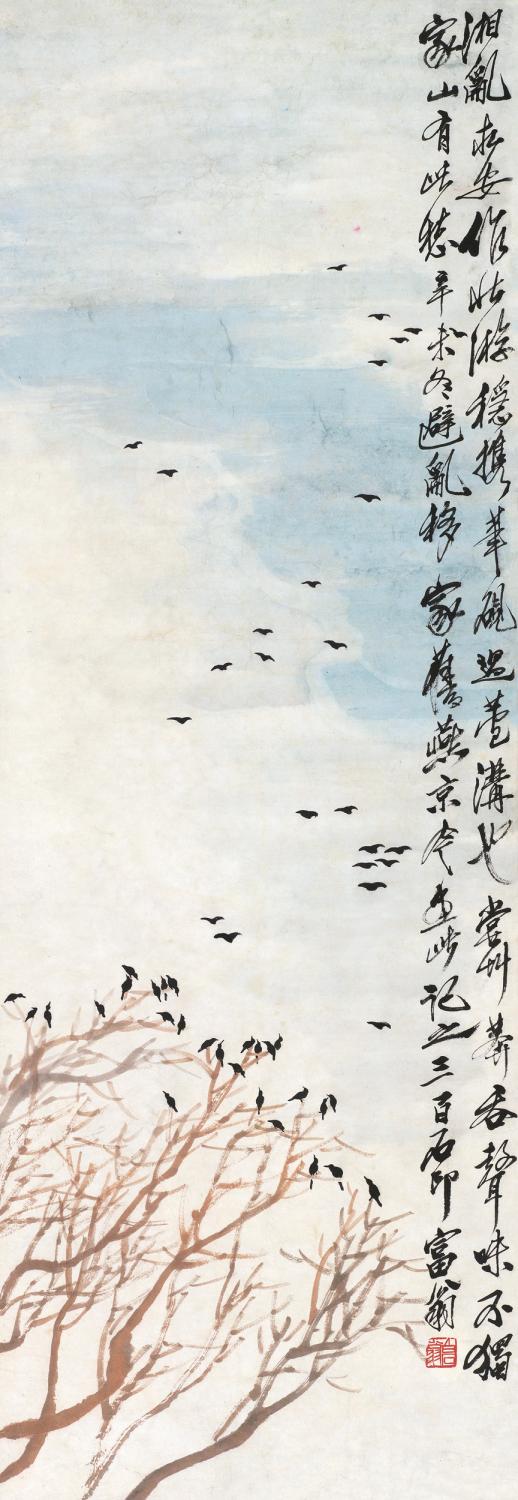 湘亂求安作北游穩攜筆硯過蘆溝也嘗艸莽吞聲味不獨
家山有此愁辛未冬避亂移家舊燕京今畫此記之三百石印富翁